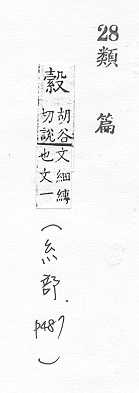 28類篇
縠
胡谷
切說
文細縛
也文一
(糸部.p487)